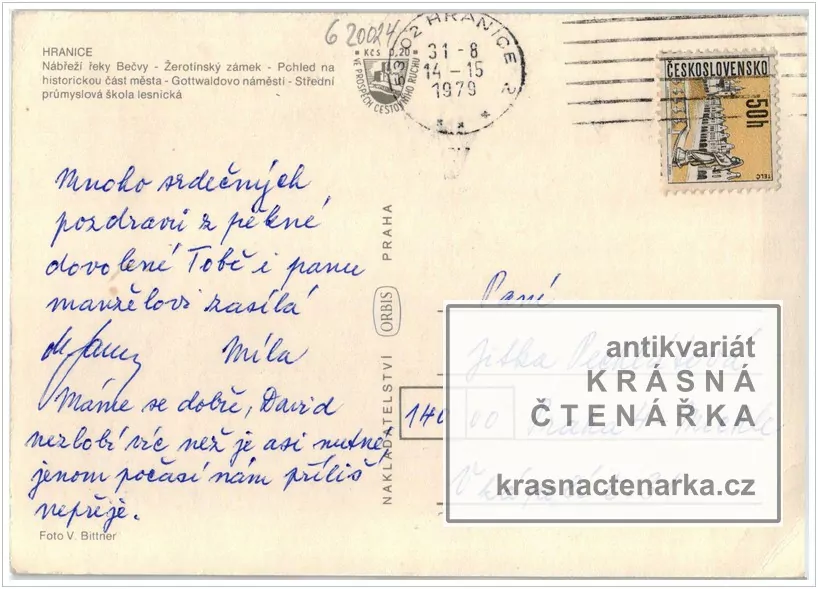 6 20024
HRANICE
Nábřeží řeky Bečvy - Žerotínský zámek - Pohled na
historickou část města - Gottwaldovo náměstí - Střední
průmyslová škola lesnická
Kčs 0,20
VE PROSPĚCH CESTOVNÍHO RUCHU
753 02 HRANICE 2
31 -8
14 - 15
1979
ČESKOSLOVENSKO
50h
TELČ
Mnoho srdečných
pozdravů z pěkné
dovolené Tobě i panu
manželovi zasílá
Míla
Máme se dobře, David
nezlobí víc než je asi nutné,
jenom počasí nám příliš
nepřeje.
Foto V. Bittner
NAKLADATELSTVÍ ORBIS PRAHA
Paní
Jitka
140 00 Praha 4
antikvariát
KRÁSNÁ
ČTENÁŘKA
krasnactenarka.cz